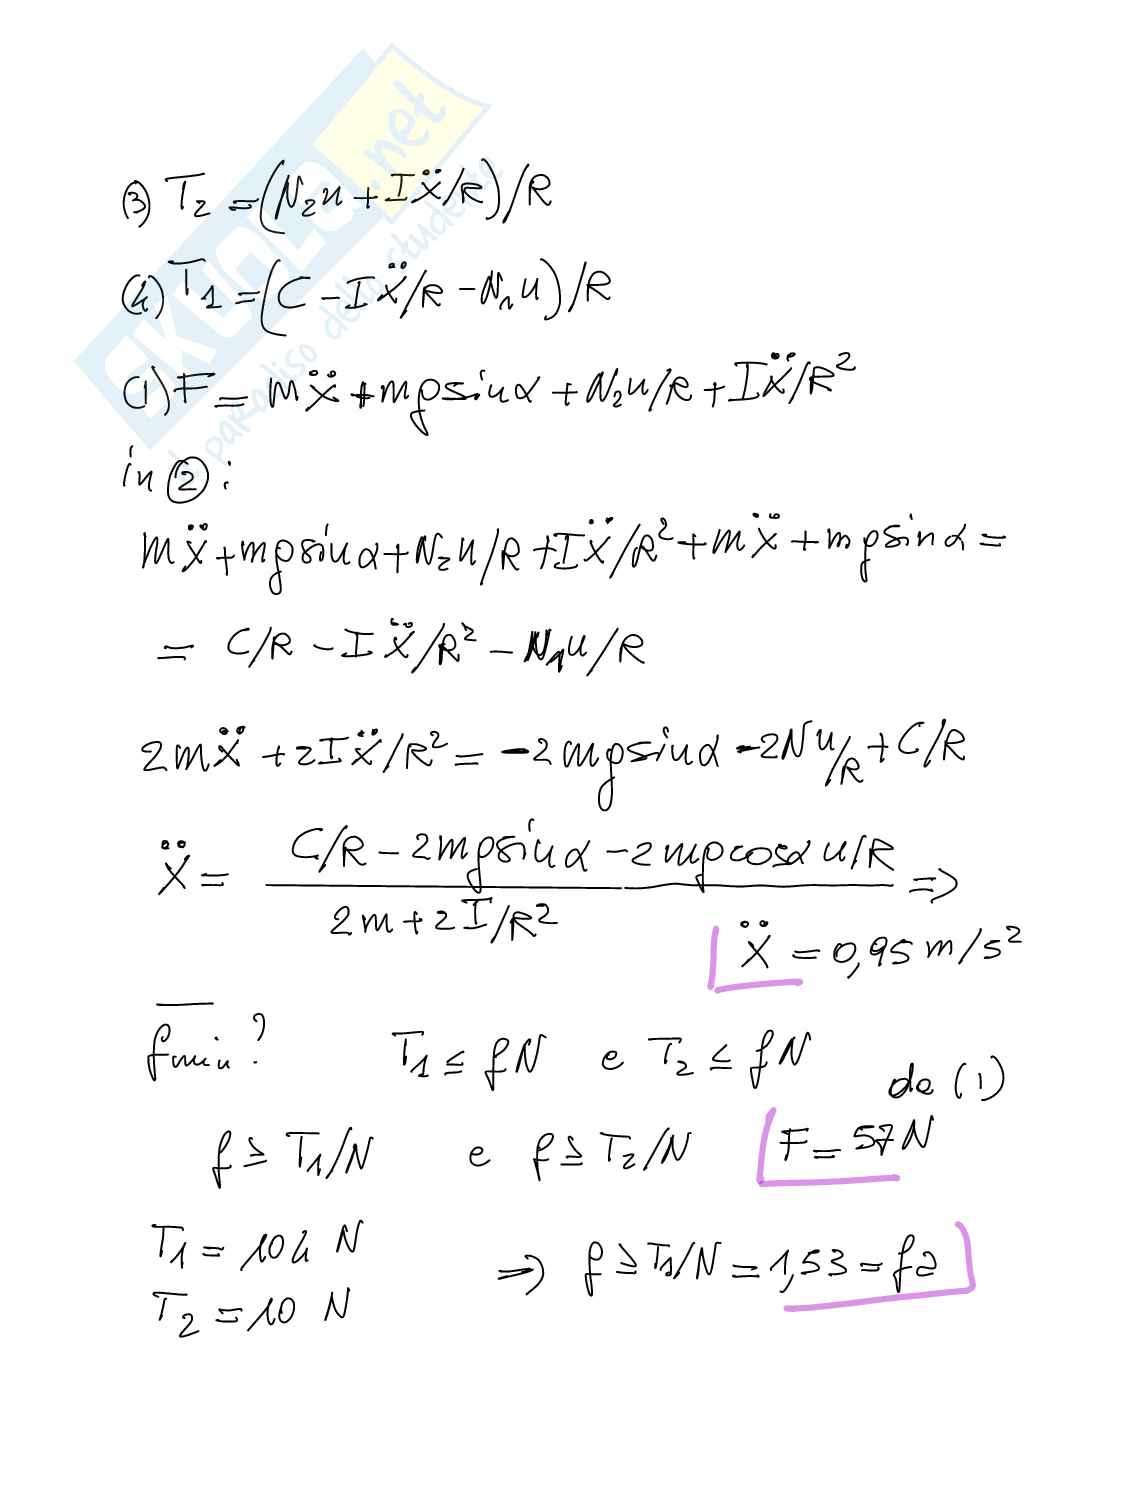 SKUOLA.net
il paradiso dello studente
(3) T₂ = (N₂u + Iẍ/R)/R
(4) T₁ = (C - Iẍ/R - N₁u)/R
(1) F = mẍ + mg sin α + N₂u/R + Iẍ/R²
in ②:
mẍ + mg sin α + N₂u/R + Iẍ/R² + mẍ + mg sin α =
= C/R - Iẍ/R² - N₁u/R
2mẍ + 2Iẍ/R² = -2mg sin α - 2Nu/R + C/R
ẍ = (C/R - 2mg sin α - 2mg cos α u/R) / (2m + 2I/R²) =>
ẍ = 0,95 m/s²
fmin? T₁ ≤ fN e T₂ ≤ fN
da (1)
f ≥ T₁/N e f ≥ T₂/N F = 57 N
T₁ = 104 N
=> f ≥ T₁/N = 1,53 = fa
T₂ = 10 N